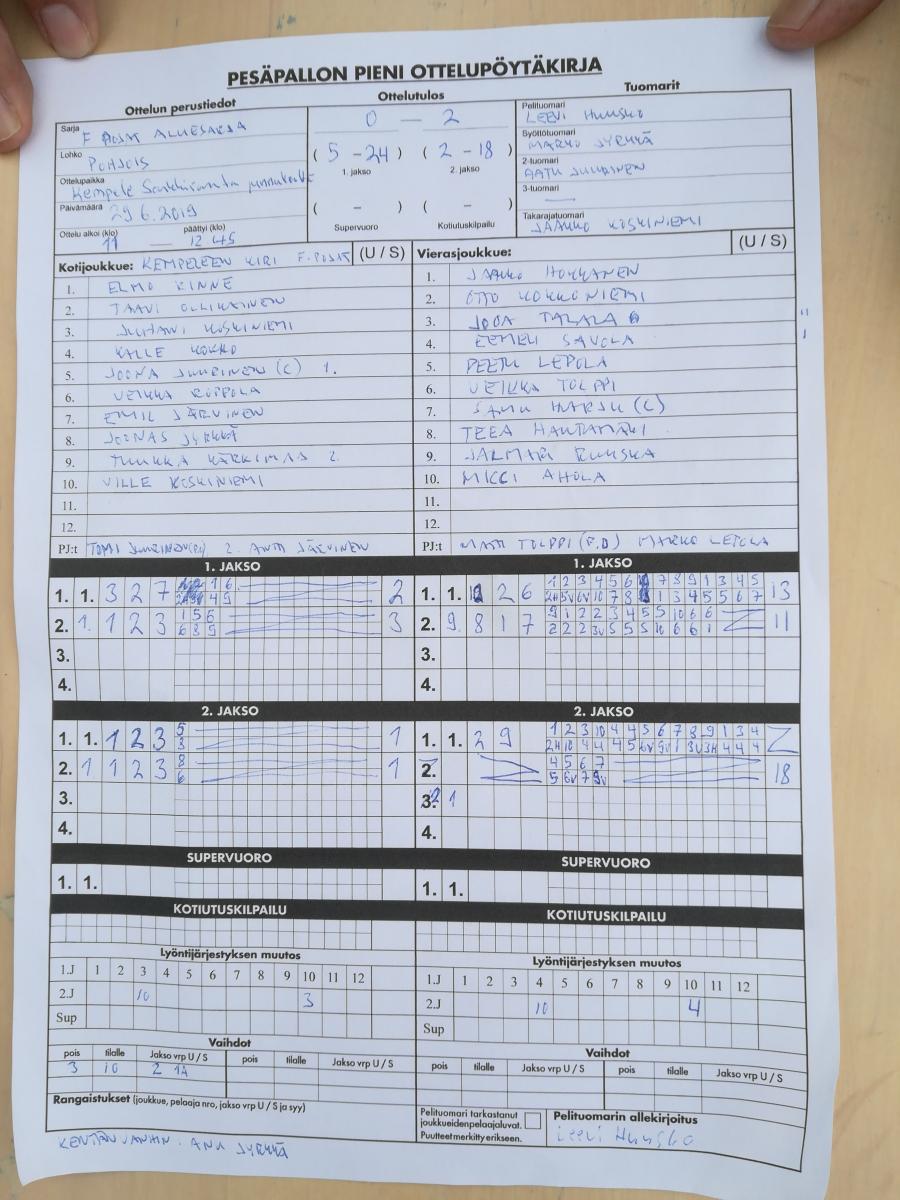 PESÄPALLON PIENI OTTELUPÖYTÄKIRJA
Ottelun perustiedot
Sarja F POJAT ALUESARJA
Lohko POHJOIS
Ottelupaikka Kempele
Päivämäärä 29.6.2019
Ottelu alkoi (klo) 11 — päättyi (klo) 12 45
Ottelutulos
0 — 2
( 5 - 24 ) ( 2 - 18 )
1. jakso 2. jakso
( - ) ( - )
Supervuoro Kotiutuskilpailu
Tuomarit
Pelituomari LEEVI HUUSKO
Syöttötuomari MARKO JYRKKÄ
2-tuomari AATU JUURINEN
3-tuomari —
Takarajatuomari JAAKKO KOSKINIEMI
Kotijoukkue: KEMPELEEN KIRI F-POJAT (U / S)
1. ELMO KINNE
2. TAAVI OLLIKAINEN
3. JUHANI KOSKINIEMI
4. KALLE KOKKO
5. JOONA JUURINEN (C) 1.
6. VEIKKA RUPPOLA
7. EMIL JÄRVINEN
8. JOONAS JYRKKÄ
9. TUUKKA KÄRKIMAS 2.
10. VILLE KOSKINIEMI
11.
12.
PJ:t TOMI JUURINEN 2. ANTTI JÄRVINEN
Vierasjoukkue: (U / S)
1. JAAKKO HOKKANEN
2. OTTO KOKKONIEMI
3. JOOA TALALA
4. EEMELI SAVOLA
5. PEETU LEPOLA
6. VEIKKA TOLPPI
7. SAMU HARJU (C)
8. TEEA HAUTAMÄKI
9. JALMARI RUUSKA
10. MICCI AHOLA
11.
12.
PJ:t MATTI TOLPPI (P.J) MARKO LEPOLA
1. JAKSO 1. JAKSO
1. 1. 3 2 7 2
2. 1. 1 2 3 1 5 6 3
6 8 5
3.
4.
1. 1. 2 6 13
2. 9. 8 1 7 9 1 2 2 3 4 5 5 10 6 6 11
2 2 2 3V 5 5 5 10 6 6 1
3.
4.
2. JAKSO 2. JAKSO
1. 1. 1 2 3 5 1
3
2. 1 1 2 3 8 1
6
3.
4.
1. 1. 2 9 1 2 3 10 4 4 5 6 7 8 9 1 3 4
2H 10 4 4 4 5 6V 9V 1 3V 3H 4 4 4
2. 4 5 6 7 18
5 6V 7 9V
3. 1
4.
SUPERVUORO SUPERVUORO
1. 1. 1. 1.
KOTIUTUSKILPAILU KOTIUTUSKILPAILU
Lyöntijärjestyksen muutos
1.J 1 2 3 4 5 6 7 8 9 10 11 12
2.J 10 3
Sup
Lyöntijärjestyksen muutos
1.J 1 2 3 4 5 6 7 8 9 10 11 12
2.J 10 4
Sup
Vaihdot
pois tilalle Jakso vrp U / S pois tilalle Jakso vrp U / S
3 10 2 1A
Vaihdot
pois tilalle Jakso vrp U / S pois tilalle Jakso vrp U / S
Rangaistukset (joukkue, pelaaja nro, jakso vrp U / S ja syy)
KENTÄN VANHIN: ANU JYRKKÄ
Pelituomari tarkastanut
joukkueidenpelaajaluvat.
Puutteetmerkitty erikseen.
Pelituomarin allekirjoitus
Leevi Huusko